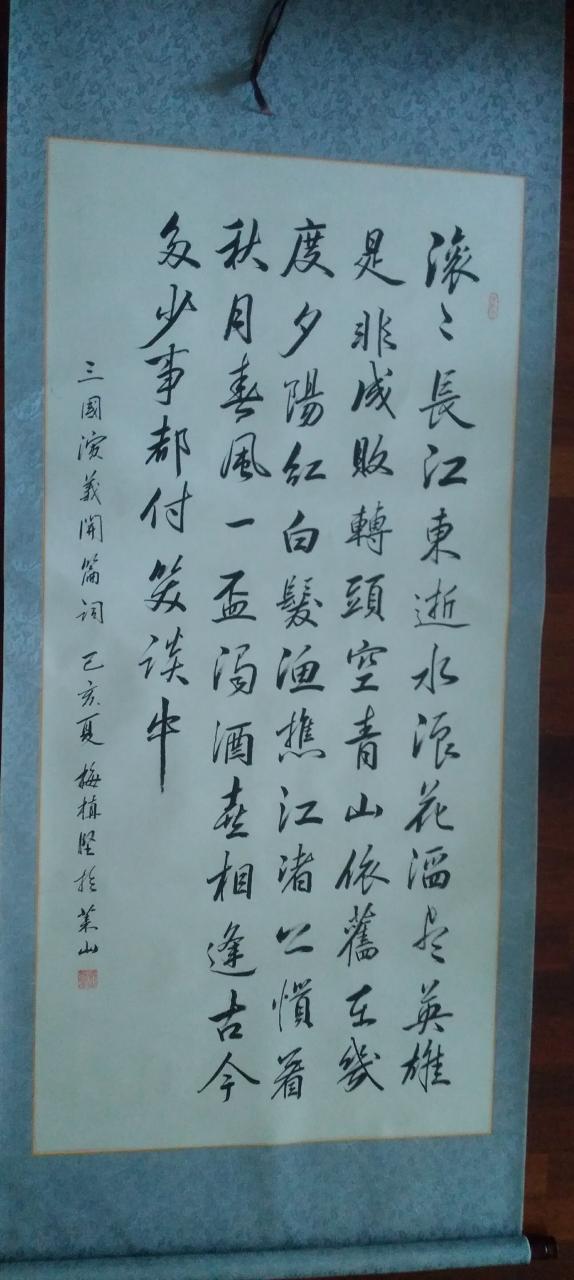 滚〻長江東逝水浪花淘尽英雄
是非成敗轉頭空青山依舊在幾
度夕陽红白髮渔樵江渚上慣看
秋月春風一盃濁酒喜相逢古今
多少事都付笑談中
三國演義開篇词 己亥夏 梅植堅於莱山